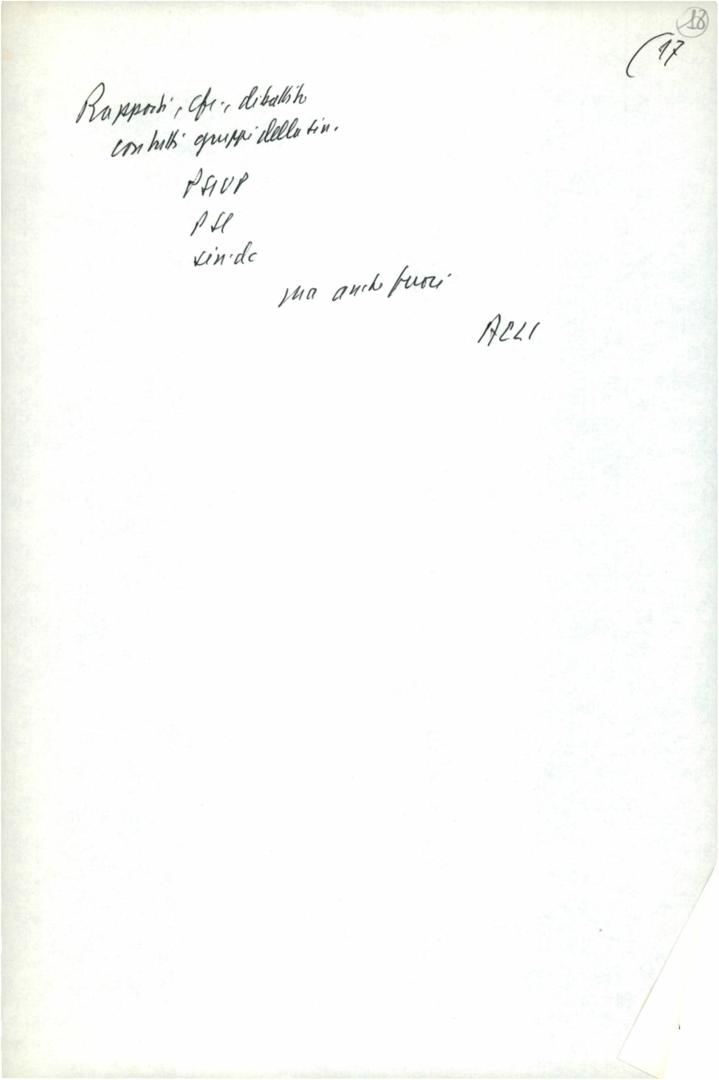 18
(17
Rapporti, cfr., dibattito
con tutti gruppi della sin.
PSIUP
PSI
sin. dc
ma anche fuori
ACLI